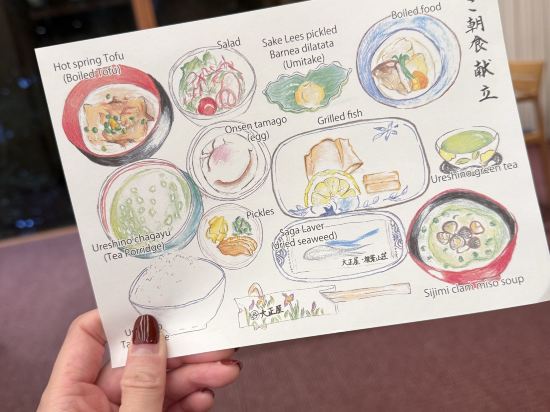 ご朝食献立
Hot spring Tofu
(Boiled Tofu)
Salad
Sake Lees pickled
Barnea dilatata
(Umitake)
Boiled food
Onsen tamago
(egg)
Grilled fish
Ureshino green tea
Ureshino chagayu
(Tea Porridge)
Pickles
Saga Laver
(dried seaweed)
大正屋
Sijimi clam miso soup
大正屋